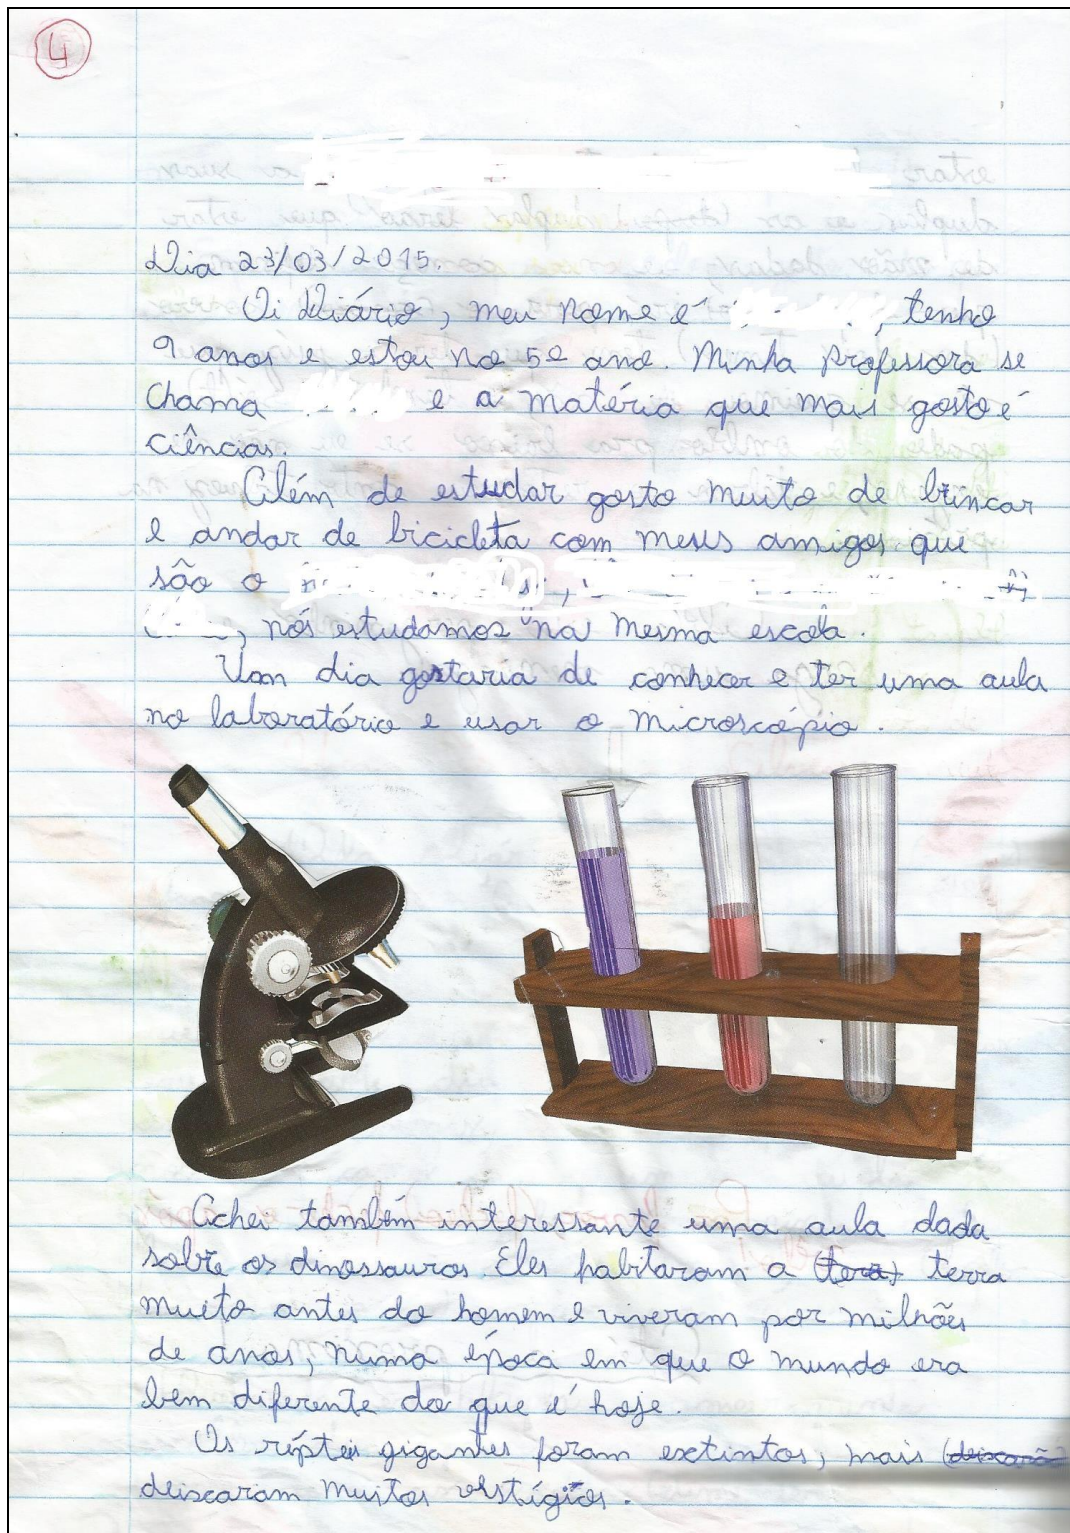 4
Dia 23/03/2015.
Oi Diário, meu nome é , tenho
9 anos e estou no 5º ano. Minha professora se
chama e a matéria que mais gosto é
ciências.
Além de estudar gosto muito de brincar
e andar de bicicleta com meus amigos que
são o
, nós estudamos na mesma escola.
Um dia gostaria de conhecer e ter uma aula
no laboratório e usar o microscópio.
Achei também interessante uma aula dada
sobre os dinossauros. Eles habitaram a (tera) terra
muito antes do homem e viveram por milhões
de anos, numa época em que o mundo era
bem diferente do que é hoje.
Os répteis gigantes foram extintos, mais (deixarão)
deixaram muitos vestígios.